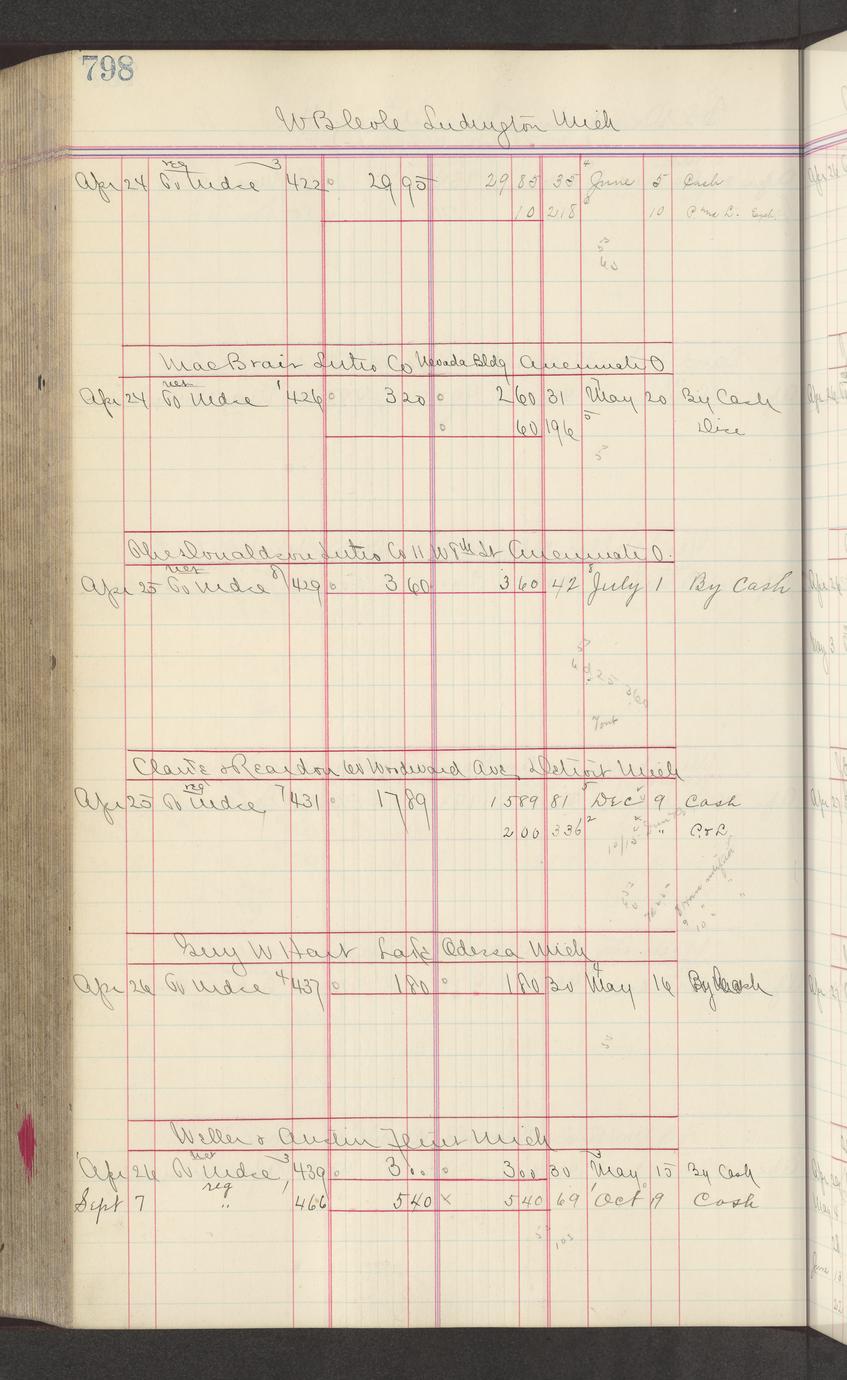 798
W B Cole Ludington Mich
reg 3 4
Apr 24 To Mdse 422 29 95 29 85 35 June 5 Cash
10 218 10 P and L. Exch.
5
60
MacBrair Litho Co Nevada Bldg Cincinnati O
net 1
Apr 24 To Mdse 426 3 20 2 60 31 May 20 By Cash
60 196 5 Disc
5
Donaldson Litho Co 11 W 8th St Cincinnati O.
net 8 8
Apr 25 To Mdse 429 3 60 3 60 42 July 1 By Cash
5
3 60
Clark & Reardon 60 Woodward Ave, Detroit Mich
reg 7 5
Apr 25 To Mdse 431 17 89 15 89 81 Dec 9 Cash
2 00 336 2 " P & L
10/15
Guy W Hart Lake Odessa Mich
4 4
Apr 26 To Mdse 437 1 80 1 80 30 May 16 By Cash
5
Weller & Austin Flint Mich
net 3 3
Apr 26 To Mdse 439 3 00 3 00 30 May 15 By Cash
reg 1 1
Sept 7 " 466 5 40 x 5 40 69 Oct 9 Cash
5
103